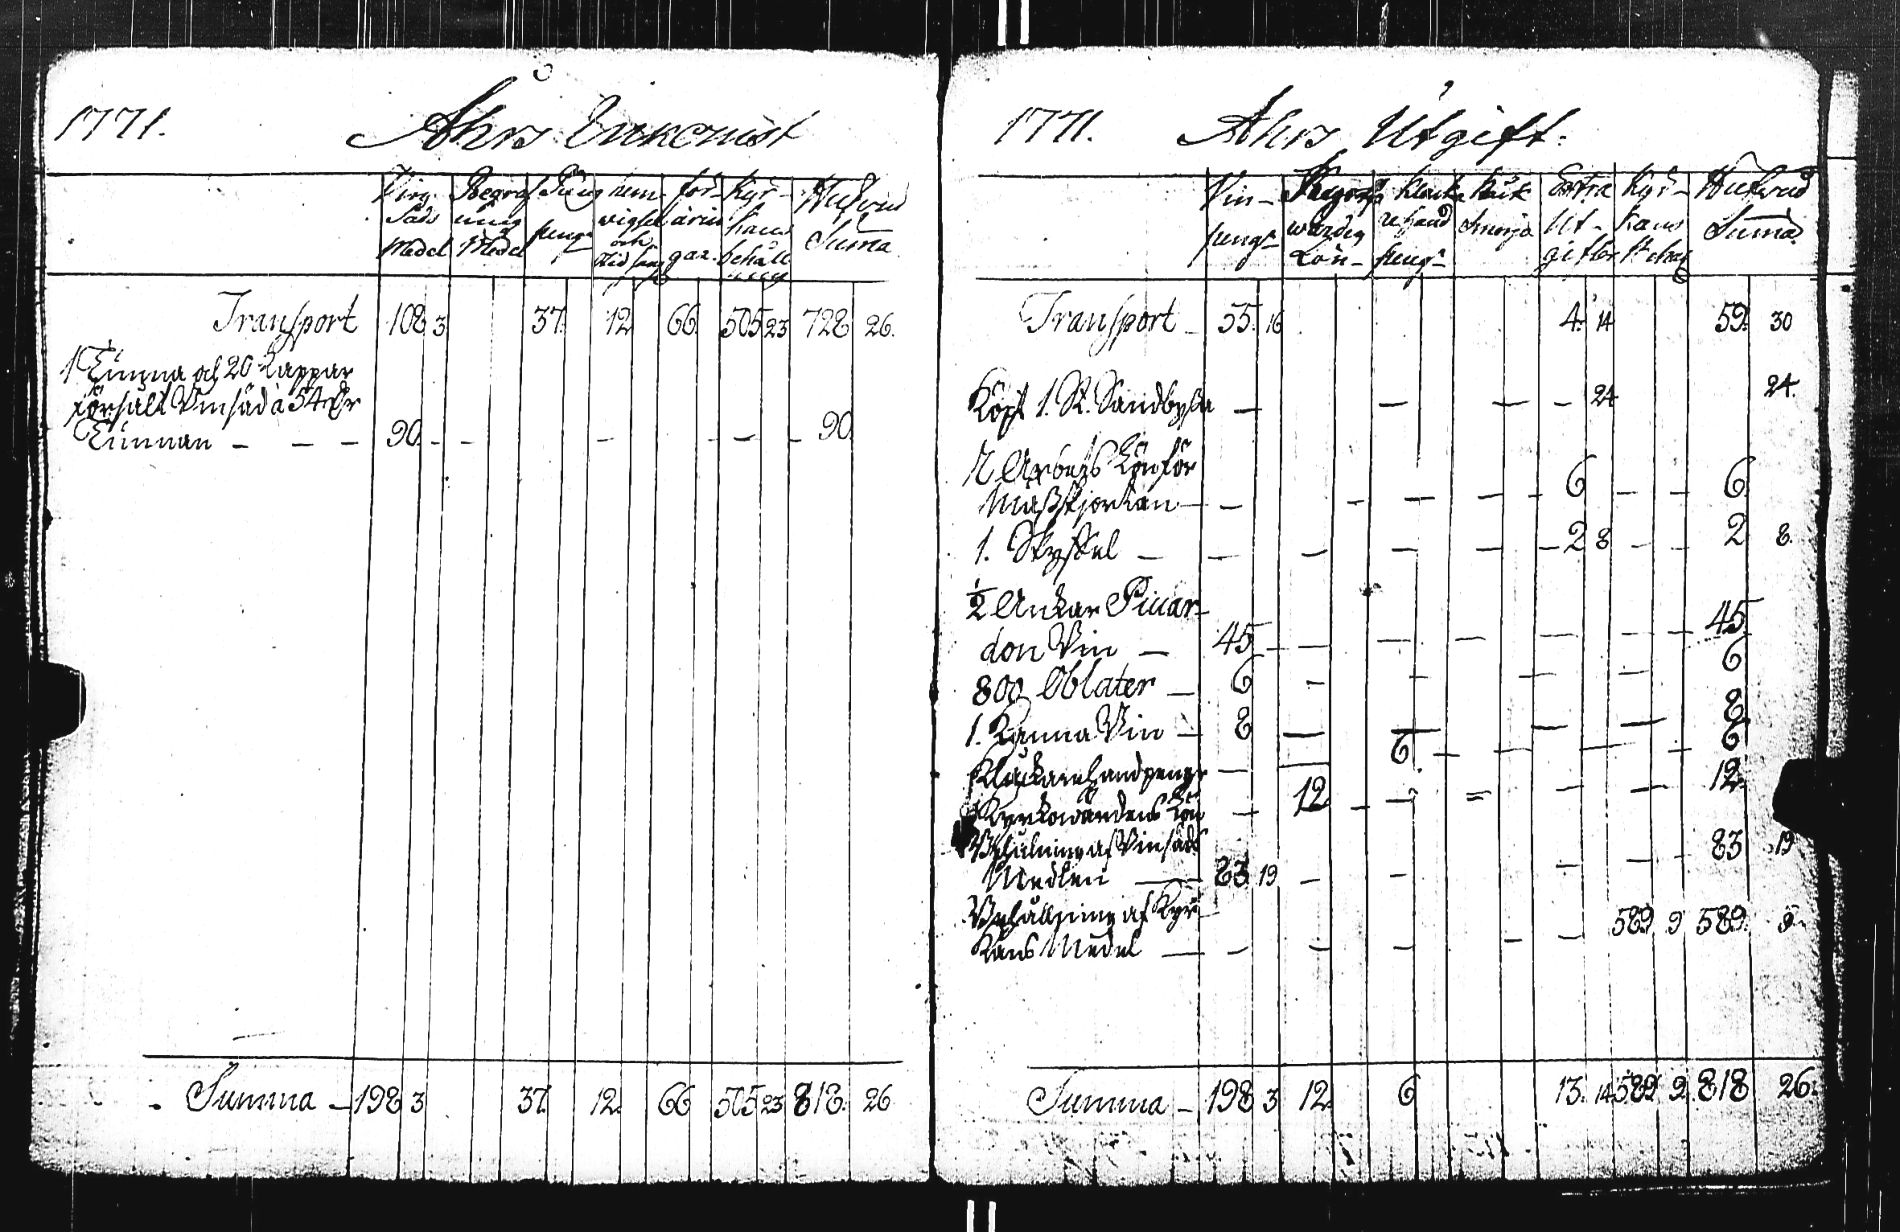 1771. Åhrs Inkomst
Vin Säds Medel
Begrafnings Medel
Pung penge
för äringar
Kyrkans behållning
Hufvud Suma
Transport 108 3 37 12 66 505 23 728 26.
1 Tunna och 20 Kappar
försåld Vinsäd à 54 dr
Tunnan — — — 90 — — — — — — 90
Summa — 198 3 37 12. 66 505 23 818. 26
1771. Åhrs Utgift.
Vin-penge
wärdes Lön-
Klockare hand penge
Klock Smörja
Extra Utgifter
Kyrkans
Hufvud Suma
Transport — 55. 16 4. 14 59. 30
Köpt 1. St. — — — — 24 24.
Arbets Lön för
Mässkjortan — — — — — 6 — — 6
1. — — — — — — 2 8 — — 2 8.
1/2 Ankar Piccar-
don Vin — 45 — — — — — — — 45
800 Oblater — 6 — — — — 6
1. Kanna Vin — 8 — — — — 8
Klockare handpenge — 6 — — — — 6
Kyrkowärdens Lön — 12 — — = — — 12
Behålning af Vinsäds
Medlen — 83 19 — — — — 83 19
Behållning af Kyr-
kans Medel — — — — — — 589 9 589. 9.
Summa — 198 3 12. 6 13. 14 589 9 818 26.